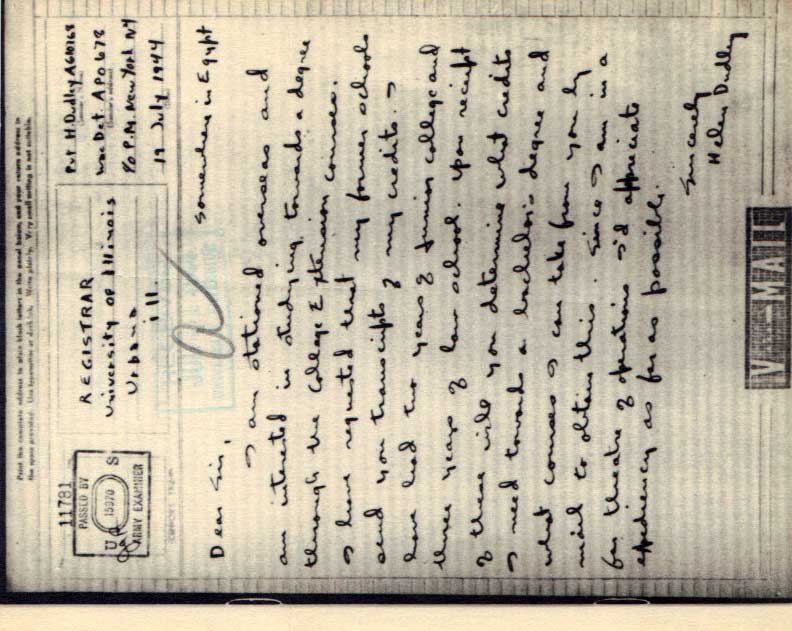 Print the complete address in plain block letters in the panel below, and your return address in
the space provided. Use typewriter or dark ink. Write plainly. Very small writing is not suitable.
11781
PASSED BY
U S
15070
ARMY EXAMINER
REGISTRAR
University of Illinois
Urbana
Ill.
Pvt H. Dudley A610168
(Sender's name)
Wac Det. APO 678
(Sender's address)
% P.M. New York NY
19 July 1944
(Date)
Somewhere in Egypt
Dear Sir,
I am stationed overseas and
am interested in studying towards a degree
through the College Extension courses.
I have requested that my former schools
send you transcipts of my credits. I
have had two years of Junior college and
three years of law school. Upon receipt
of these will you determine what credits
I need towards a bachelors degree and
what courses I can take from you by
mail to obtain this. Since I am in a
far theatre of operations I'd appreciate
expediency as far as possible.
Sincerely
Helen Dudley
V···—MAIL